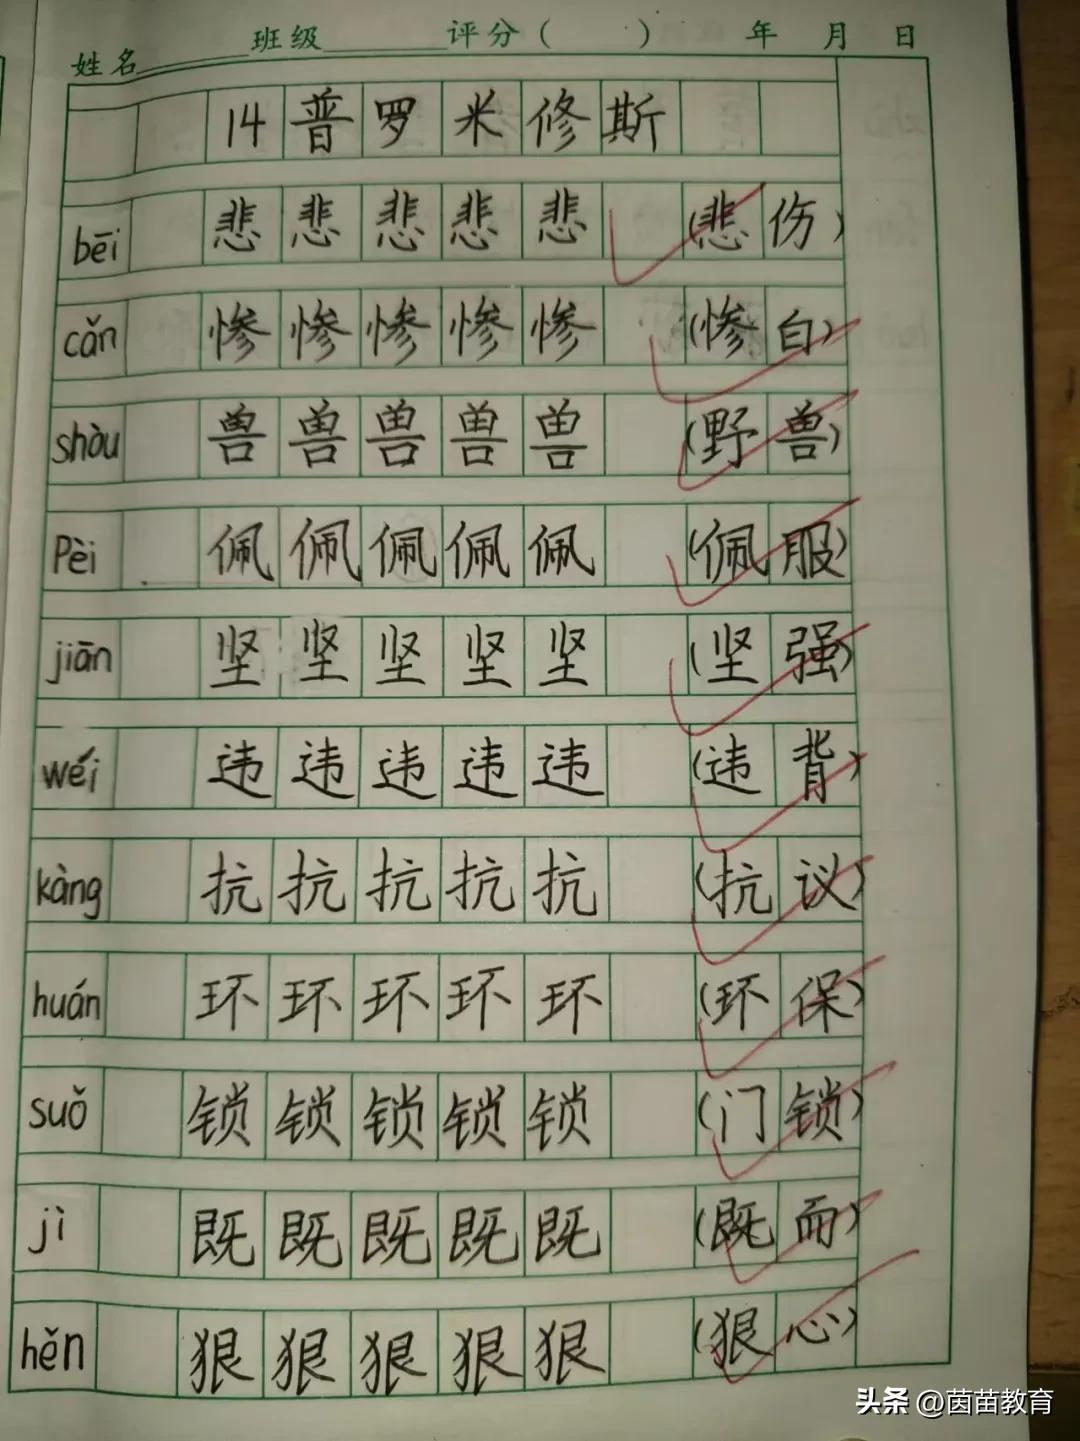 姓名 班级 评分( ) 年 月 日
14 普罗米修斯
bēi 悲 悲 悲 悲 悲 (悲伤)
cǎn 惨 惨 惨 惨 惨 (惨白)
shòu 兽 兽 兽 兽 兽 (野兽)
Pèi 佩 佩 佩 佩 佩 (佩服)
jiān 坚 坚 坚 坚 坚 (坚强)
wéi 违 违 违 违 违 (违背)
kàng 抗 抗 抗 抗 抗 (抗议)
huán 环 环 环 环 环 (环保)
suǒ 锁 锁 锁 锁 锁 (门锁)
jì 既 既 既 既 既 (既而)
hěn 狠 狠 狠 狠 狠 (狠心)
头条 @茵苗教育